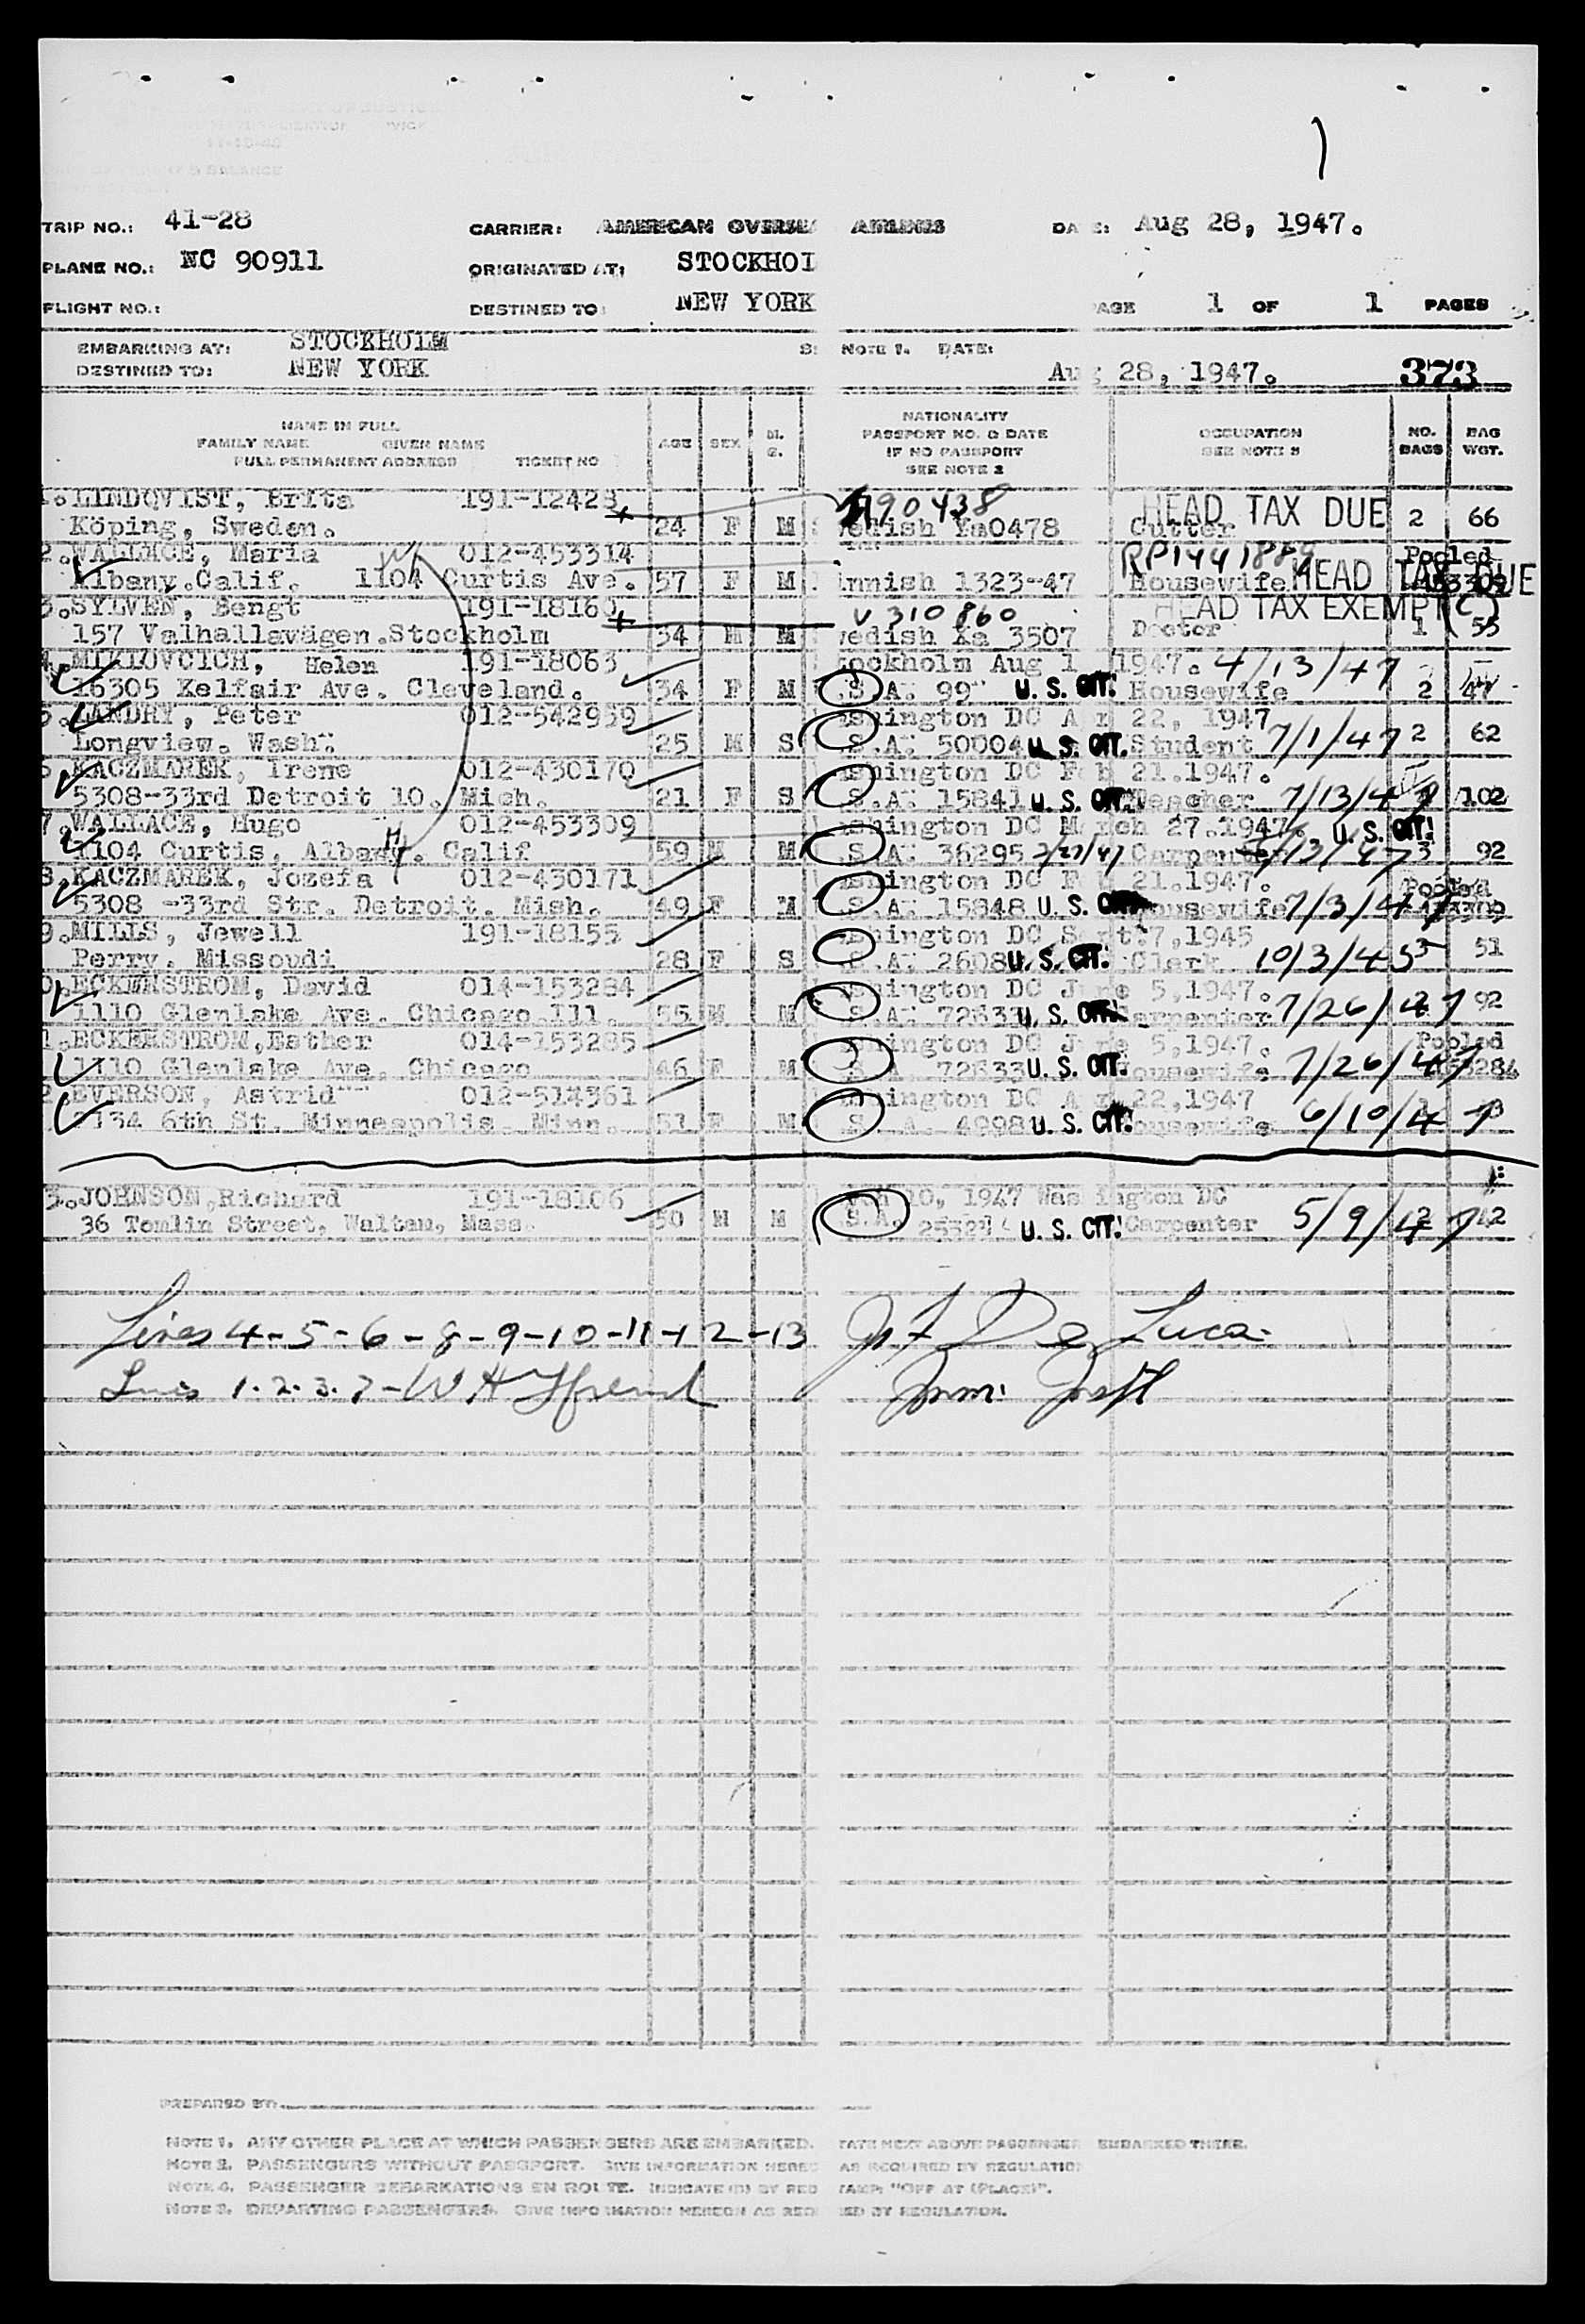 TRIP NO.: 41-28 CARRIER: AMERICAN OVERSE AIRLINES DA E: Aug 28, 1947.
PLANE NO.: NC 90911 ORIGINATED AT: STOCKHOL
FLIGHT NO.: DESTINED TO: NEW YORK AGE 1 OF 1 PAGES
EMBARKING AT: STOCKHOLM NOTE 1. DATE:
DESTINED TO: NEW YORK Au 28, 1947. 373
NAME IN FULL
FAMILY NAME GIVEN NAME
FULL PERMANENT ADDRESS TICKET NO
AGE SEX M. S.
NATIONALITY
PASSPORT NO. & DATE
IF NO PASSPORT
SEE NOTE 2
OCCUPATION
SEE NOTE 3
NO. BAGS BAG WGT.
LINDQVIST, Brita 191-12423 190438 HEAD TAX DUE
Köping, Sweden. 24 F M edish Ya0478 Cutter 2 66
2. WALLACE, Maria 012-453314 Pooled
Albany.Calif. 1104 Curtis Ave. 57 F M innish 1323-47 Housewife HEAD TAX DUE
3. SYLVEN, Bengt 191-18160 V 310860 HEAD TAX EXEMPT (C)
157 Valhallavägen.Stockholm 34 M M edish Xa 3507 Doctor 1 55
MIKLOVCICH, Helen 191-18063 tockholm Aug 1 1947. 4/13/47
16305 Kelfair Ave. Cleveland. 34 F M S.A. 99 U. S. CIT. Housewife 2 47
LANDRY, Peter 012-542939 shington DC A r 22, 1947
Longview. Wash. 25 M S S.A. 50004 U. S. CIT. Student 7/1/47 2 62
KACZMAREK, Irene 012-430170 shington DC Feb 21.1947.
5308-33rd Detroit 10. Mich. 21 F S S.A. 15841 U. S. CIT. Teacher 7/13/47 102
7. WALLACE, Hugo 012-453309 shington DC M rch 27.1947. U. S. CIT.
1104 Curtis, Albany. Calif 59 M M S.A. 36295 Carpenter 3 92
KACZMAREK, Jozefa 012-430171 shington DC F 21.1947. Pooled
5308 -33rd Str. Detroit. Mish. 49 F M S.A. 15848 U. S. CIT. ousewife 7/3/47
9. MILLS, Jewell 191-18155 shington DC Sept.7,1945
Perry. Missoudi 28 F S S.A. 2608 U. S. CIT. Clerk 10/3/45 51
ECKERSTROM, David 014-153284 shington DC J e 5,1947.
1110 Glenlake Ave. Chicago.Ill. 55 M M S.A. 72633 U. S. CIT. arpenter 7/26/47 92
ECKERSTROM,Esther 014-153285 shington DC J e 5,1947. Pooled
1110 Glenlake Ave. Chicago 46 F M S.A. 72633 U. S. CIT. ousewife 7/26/47
EVERSON, Astrid 012-514361 shington DC A r 22,1947
3134 6th St. Minneapolis. Minn. 51 F M S.A. 4998 U. S. CIT. ousewife 6/10/47
3. JOHNSON,Richard 191-18106 10, 1947 Was ington DC
36 Tomlin Street, Waltam, Mass. 50 M M S.A. U. S. CIT. Carpenter 5/9/47
Lines 4-5-6-8-9-10-11-12-13 De Luca
Lines 1.2.3.7-W H Imm. Insp
PREPARED BY:
NOTE 1. ANY OTHER PLACE AT WHICH PASSENGERS ARE EMBARKED. TATE NEXT ABOVE PASSENGE EMBARKED THERE.
NOTE 2. PASSENGERS WITHOUT PASSPORT. GIVE INFORMATION HERE AS REQUIRED BY REGULATIO
NOTE 4. PASSENGER DEBARKATIONS EN ROUTE. INDICATE (D) BY RED TAMP: "OFF AT (PLACE)".
NOTE 3. DEPARTING PASSENGERS. GIVE INFORMATION HEREON AS REQ ED BY REGULATION.